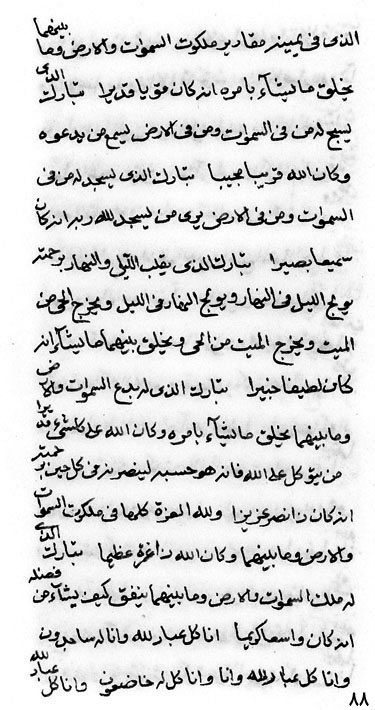 الذى فى يمينه مقادير ملكوت السموات والارض وما بينهما
يخلق ما يشآء بامره انه كان قويا قديرا تبارك الذى
يسبح له من فى السموات ومن فى الارض يسمع من يدعوه
وكان الله قريبا مجيبا تبارك الذى يسجد له من فى
السموات ومن فى الارض يرى من يسجد لله ربه انه كان
سميعا بصيرا تبارك الذى يقلب الليل والنهار برحمته
يولج الليل فى النهار ويولج النهار فى الليل ويخرج الحى من
الميت ويخرج الميت من الحى ويخلق بينهما ما يشآء انه
كان لطيفا خبيرا تبارك الذى له بدع السموات والارض
وما بينهما يخلق ما يشآء بامره وكان الله على كلشئ قديرا
من يتوكل على الله فانه هو حسبه لينصرنه فى كل حين برحمته
انه كان ذا نصر عزيزا ولله العزة كلها فى ملكوت السموات
والارض وما بينهما وكان الله ذا عزة عظيما تبارك الذى
له ملك السموات والارض وما بينهما ينفق كيف يشآء من فضله
انه كان واسعا كريما انا كل عباد لله وانا له ساجدون
وانا كل عباد لله وانا وانا كل له خاضعون وانا كل عباد لله
٨٨